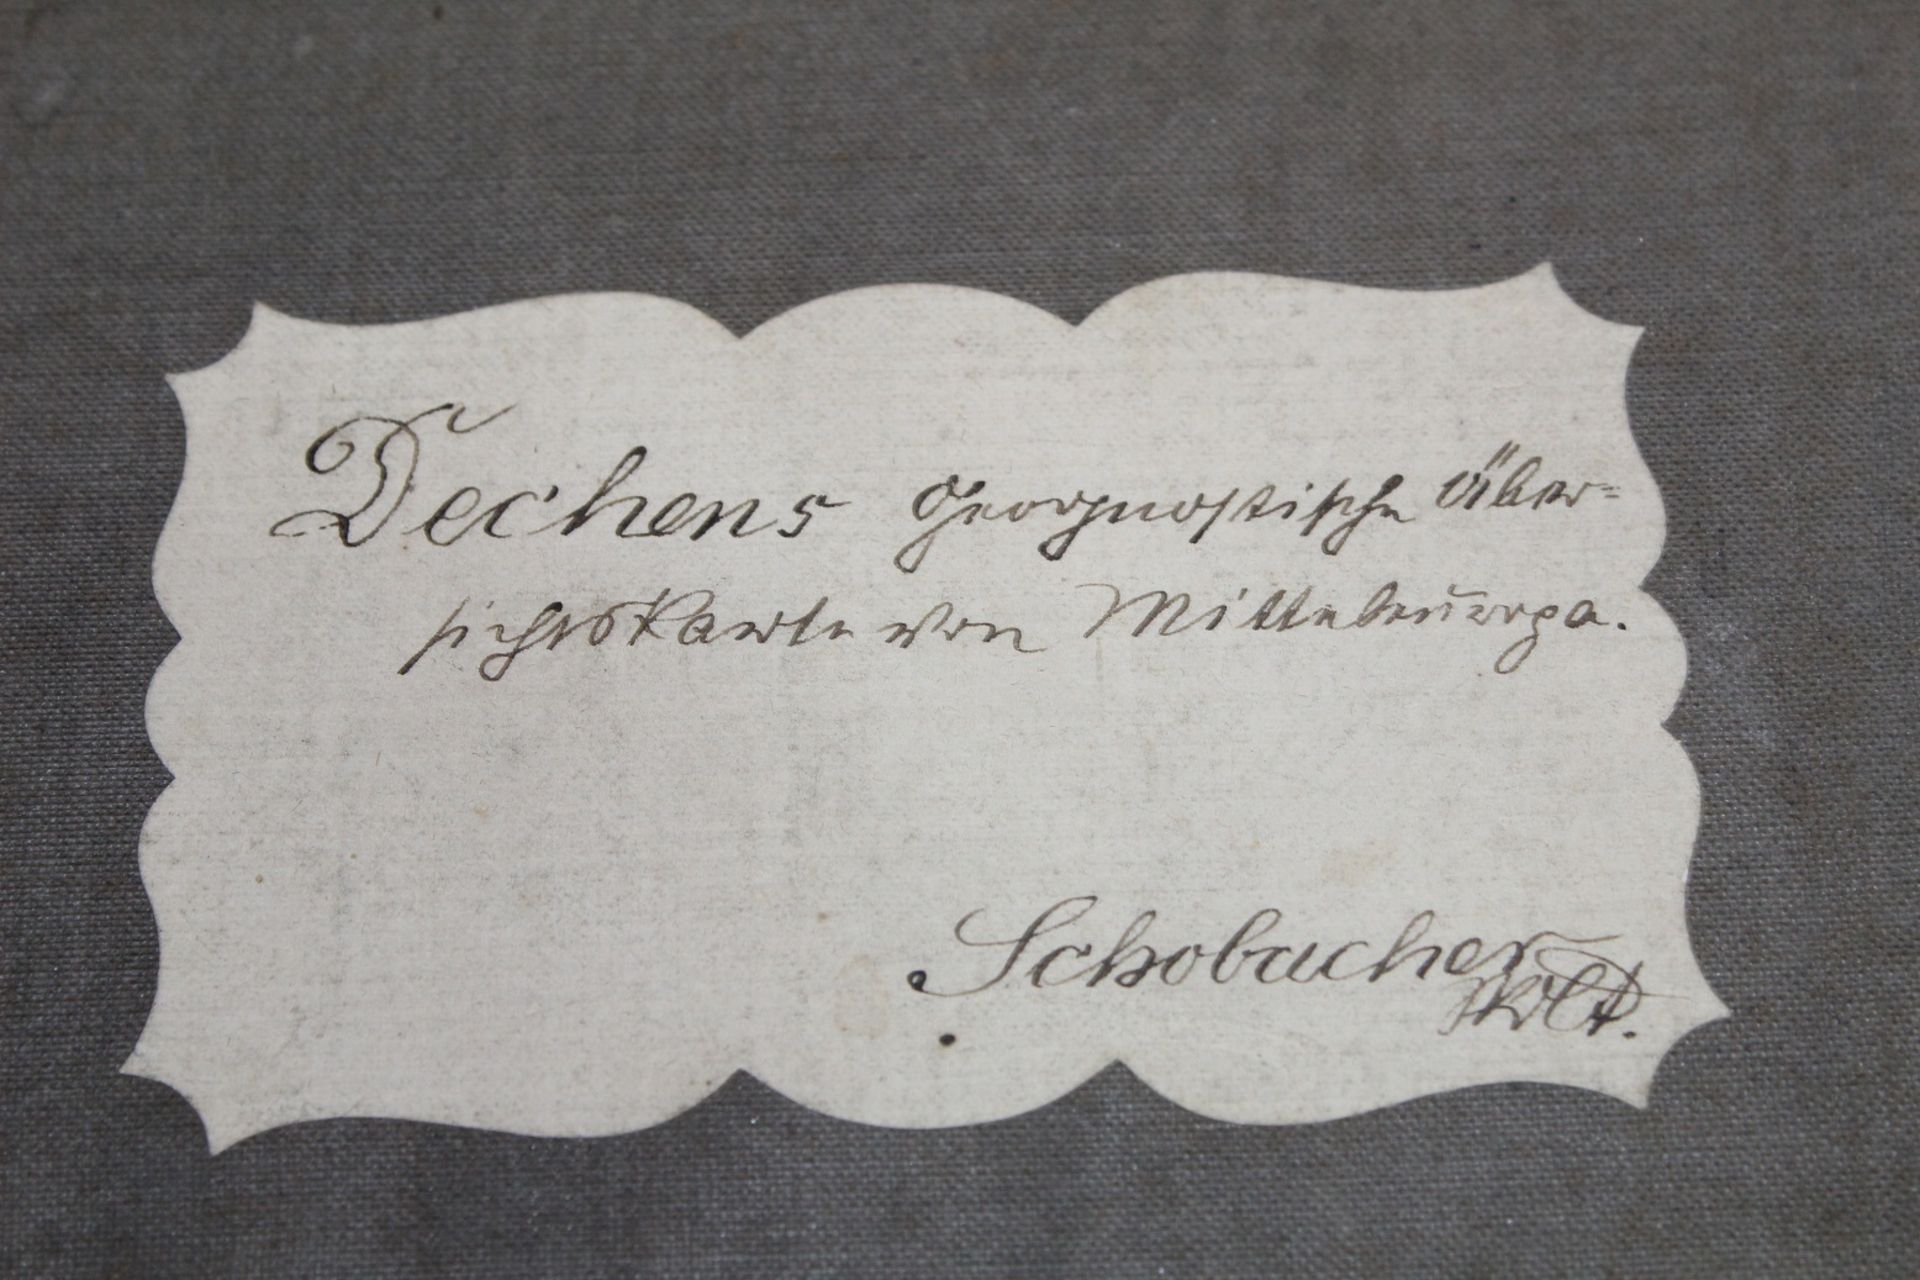 Dechens geognostische Über=
sichtskarte von Mitteleuropa.
Schobacher